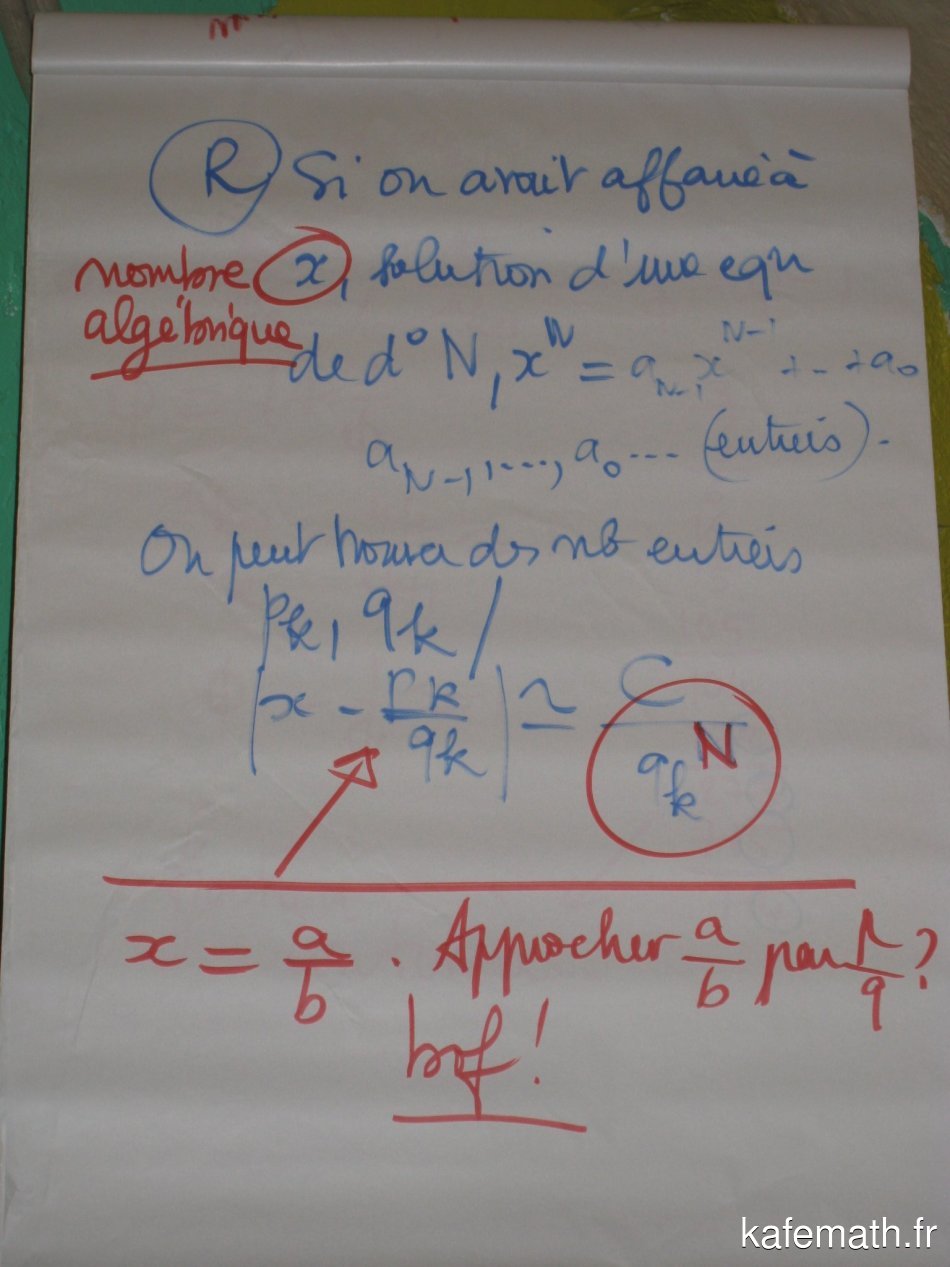 R Si on avait affaire à
nombre algébrique
x, solution d'une eqn
de d° N, x^N = a_{N-1} x^{N-1} + - + a_0
a_{N-1}, ..., a_0 ... (entiers).
On peut trouver des nb entiers
p_k, q_k /
|x - p_k/q_k| ≃ C/q_k^N
x = a/b . Approcher a/b par p/q ?
bof !
kafemath.fr